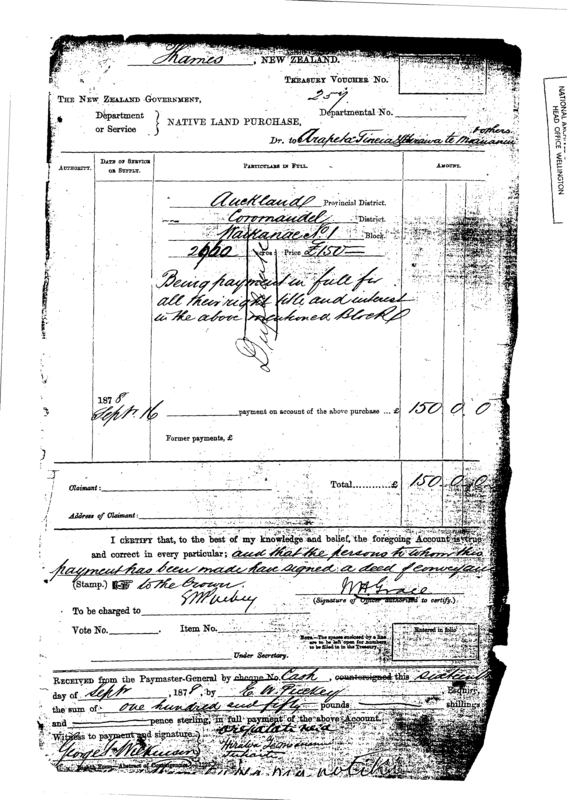 Thames, NEW ZEALAND.
TREASURY VOUCHER No.
259
THE NEW ZEALAND GOVERNMENT,
Departmental No.
Department
or Service } NATIVE LAND PURCHASE,
Dr. to Arapeta Tineia te & others
AUTHORITY. DATE OF SERVICE OR SUPPLY. PARTICULARS IN FULL. AMOUNT.
Auckland Provincial District.
Coromandel District.
Waikanae No 1 Block.
acres: Price £150
Duplicate
Being payment in full for
all their right title and interest
in the above mentioned Block
1878
Sept. 16 payment on account of the above purchase ... £ 150 0 0
Former payments, £
Claimant: Total............£ 150 0 0
Address of Claimant:
I CERTIFY that, to the best of my knowledge and belief, the foregoing Account is true
and correct in every particular; and that the persons to whom this
payment has been made have signed a deed of conveyance
(Stamp.) to the Crown.
(Signature of Officer authorized to certify.)
To be charged to
Vote No. Item No.
NOTE.—The spaces enclosed by a line are to be left open for numbers to be filled in in the Treasury.
Entered in folio
Under Secretary.
RECEIVED from the Paymaster-General by cheque No. Cash, countersigned this sixteenth
day of Sept 1878, by E. W. Puckey Esquire
the sum of one hundred and fifty pounds shillings
and pence sterling, in full payment of the above Account.
Witness to payment and signature:
George Wilkinson